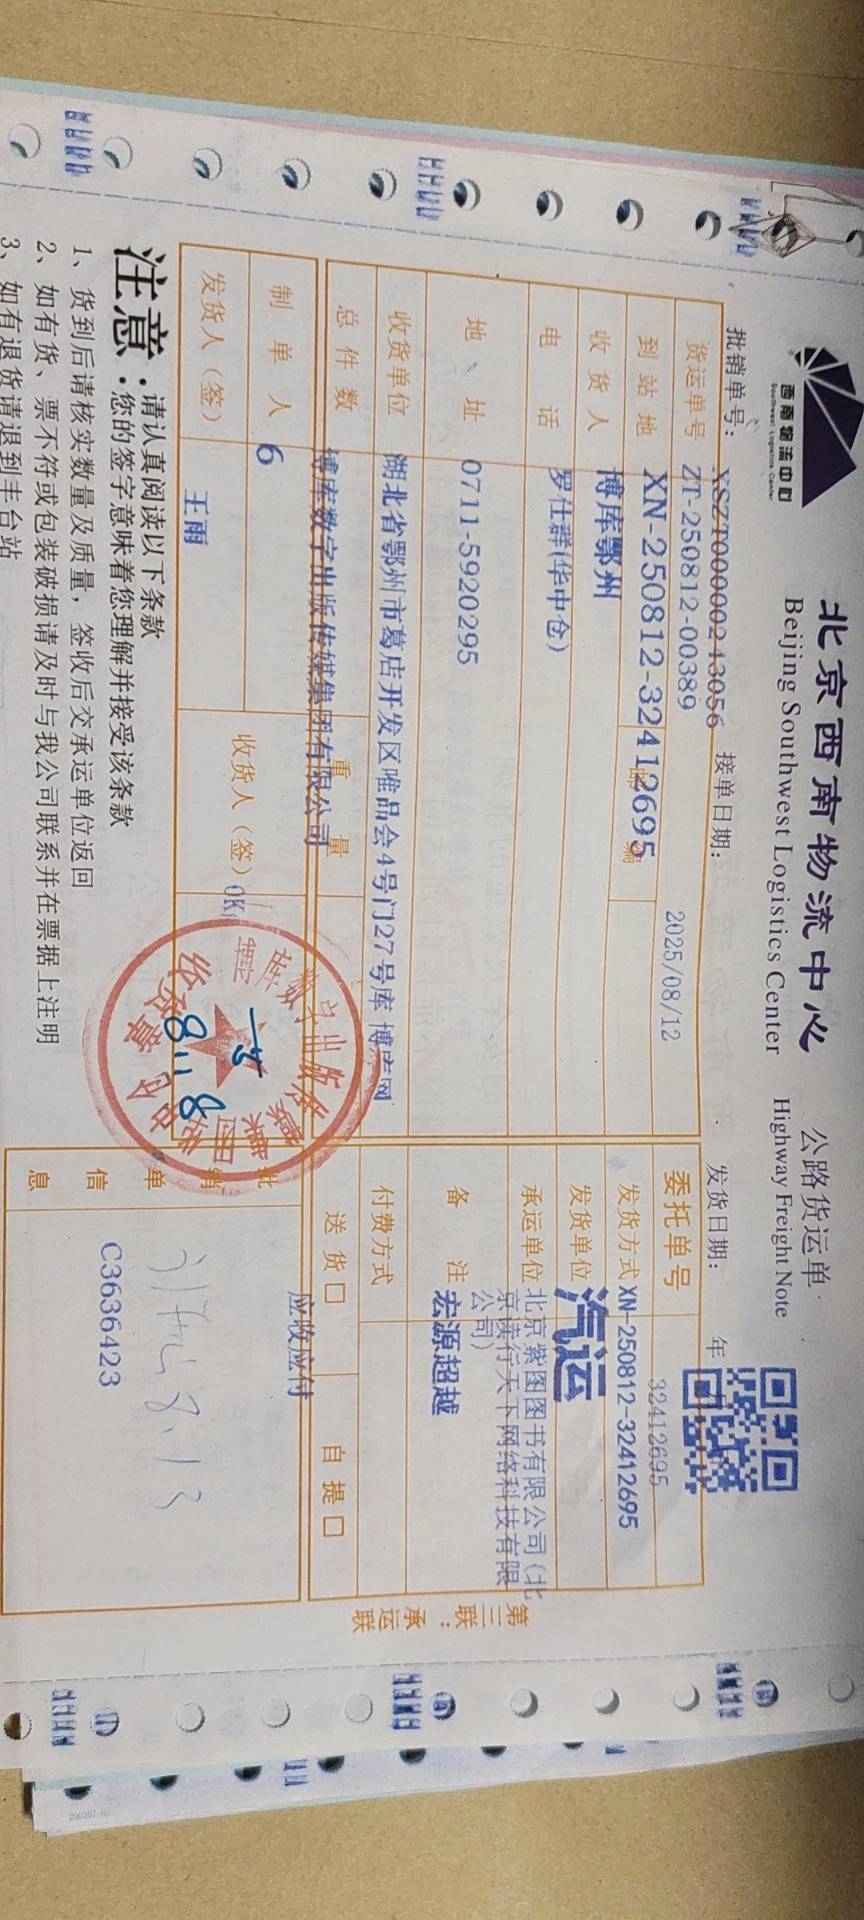 西南物流中心
Southwest Logistics Center
北京西南物流中心
Beijing Southwest Logistics Center
公路货运单
Highway Freight Note
批销单号：
XSZT00000243056
接单日期：
2025/08/12
发货日期：
年
货运单号
ZT-250812-00389
委托单号
32412695
到站地
XN-250812-32412695
发货方式
XN-250812-32412695
收货人
博库鄂州
发货单位
汽运
电话
罗仕群(华中仓)
承运单位
北京紫图图书有限公司(北
京读行天下网络科技有限
公司)
地址
0711-5920295
备注
宏源超越
收货单位
湖北省鄂州市葛店开发区唯品会4号门27号库 博库网
付费方式
总件数
博库数字出版传媒集团有限公司
重量
送货□
自提□
应收应付
制单人
6
收货人(签)
OK
发货人(签)
王雨
批销单信息
C3636423
8.13
8.18
第三联：承运联
注意：
请认真阅读以下条款
您的签字意味着您理解并接受该条款
1、货到后请核实数量及质量，签收后交承运单位返回
2、如有货、票不符或包装破损请及时与我公司联系并在票据上注明
3、如有退货请退到丰台站